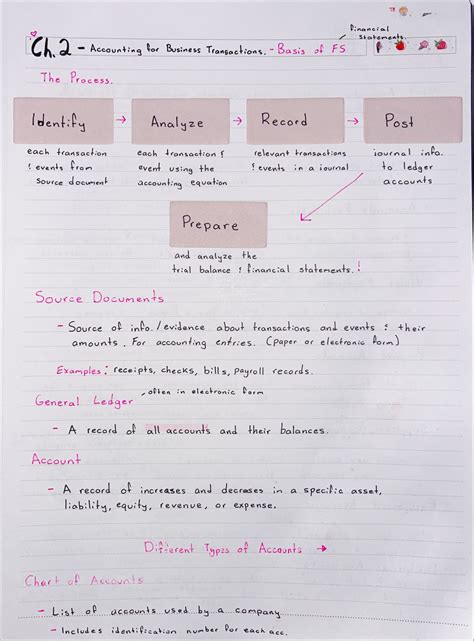 financial
statements.
Ch.2 - Accounting for Business Transactions. - Basis of FS
The Process.
Identify → Analyze → Record → Post
each transaction
& events from
source document
each transaction &
event using the
accounting equation
relevant transactions
& events in a journal
journal info.
to ledger
accounts
Prepare
and analyze the
trial balance & financial statements.!
Source Documents
- Source of info./evidence about transactions and events & their
amounts. For accounting entries. (paper or electronic form)
Examples: receipts, checks, bills, payroll records.
General Ledger , often in electronic form
- A record of all accounts and their balances.
Account
- A record of increases and decreases in a specific asset,
liability, equity, revenue, or expense.
Different Types of Accounts →
Chart of Accounts
- List of accounts used by a company
- Includes identification number for each acc.